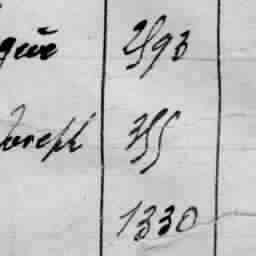 que 2593
Joseph 355
1330